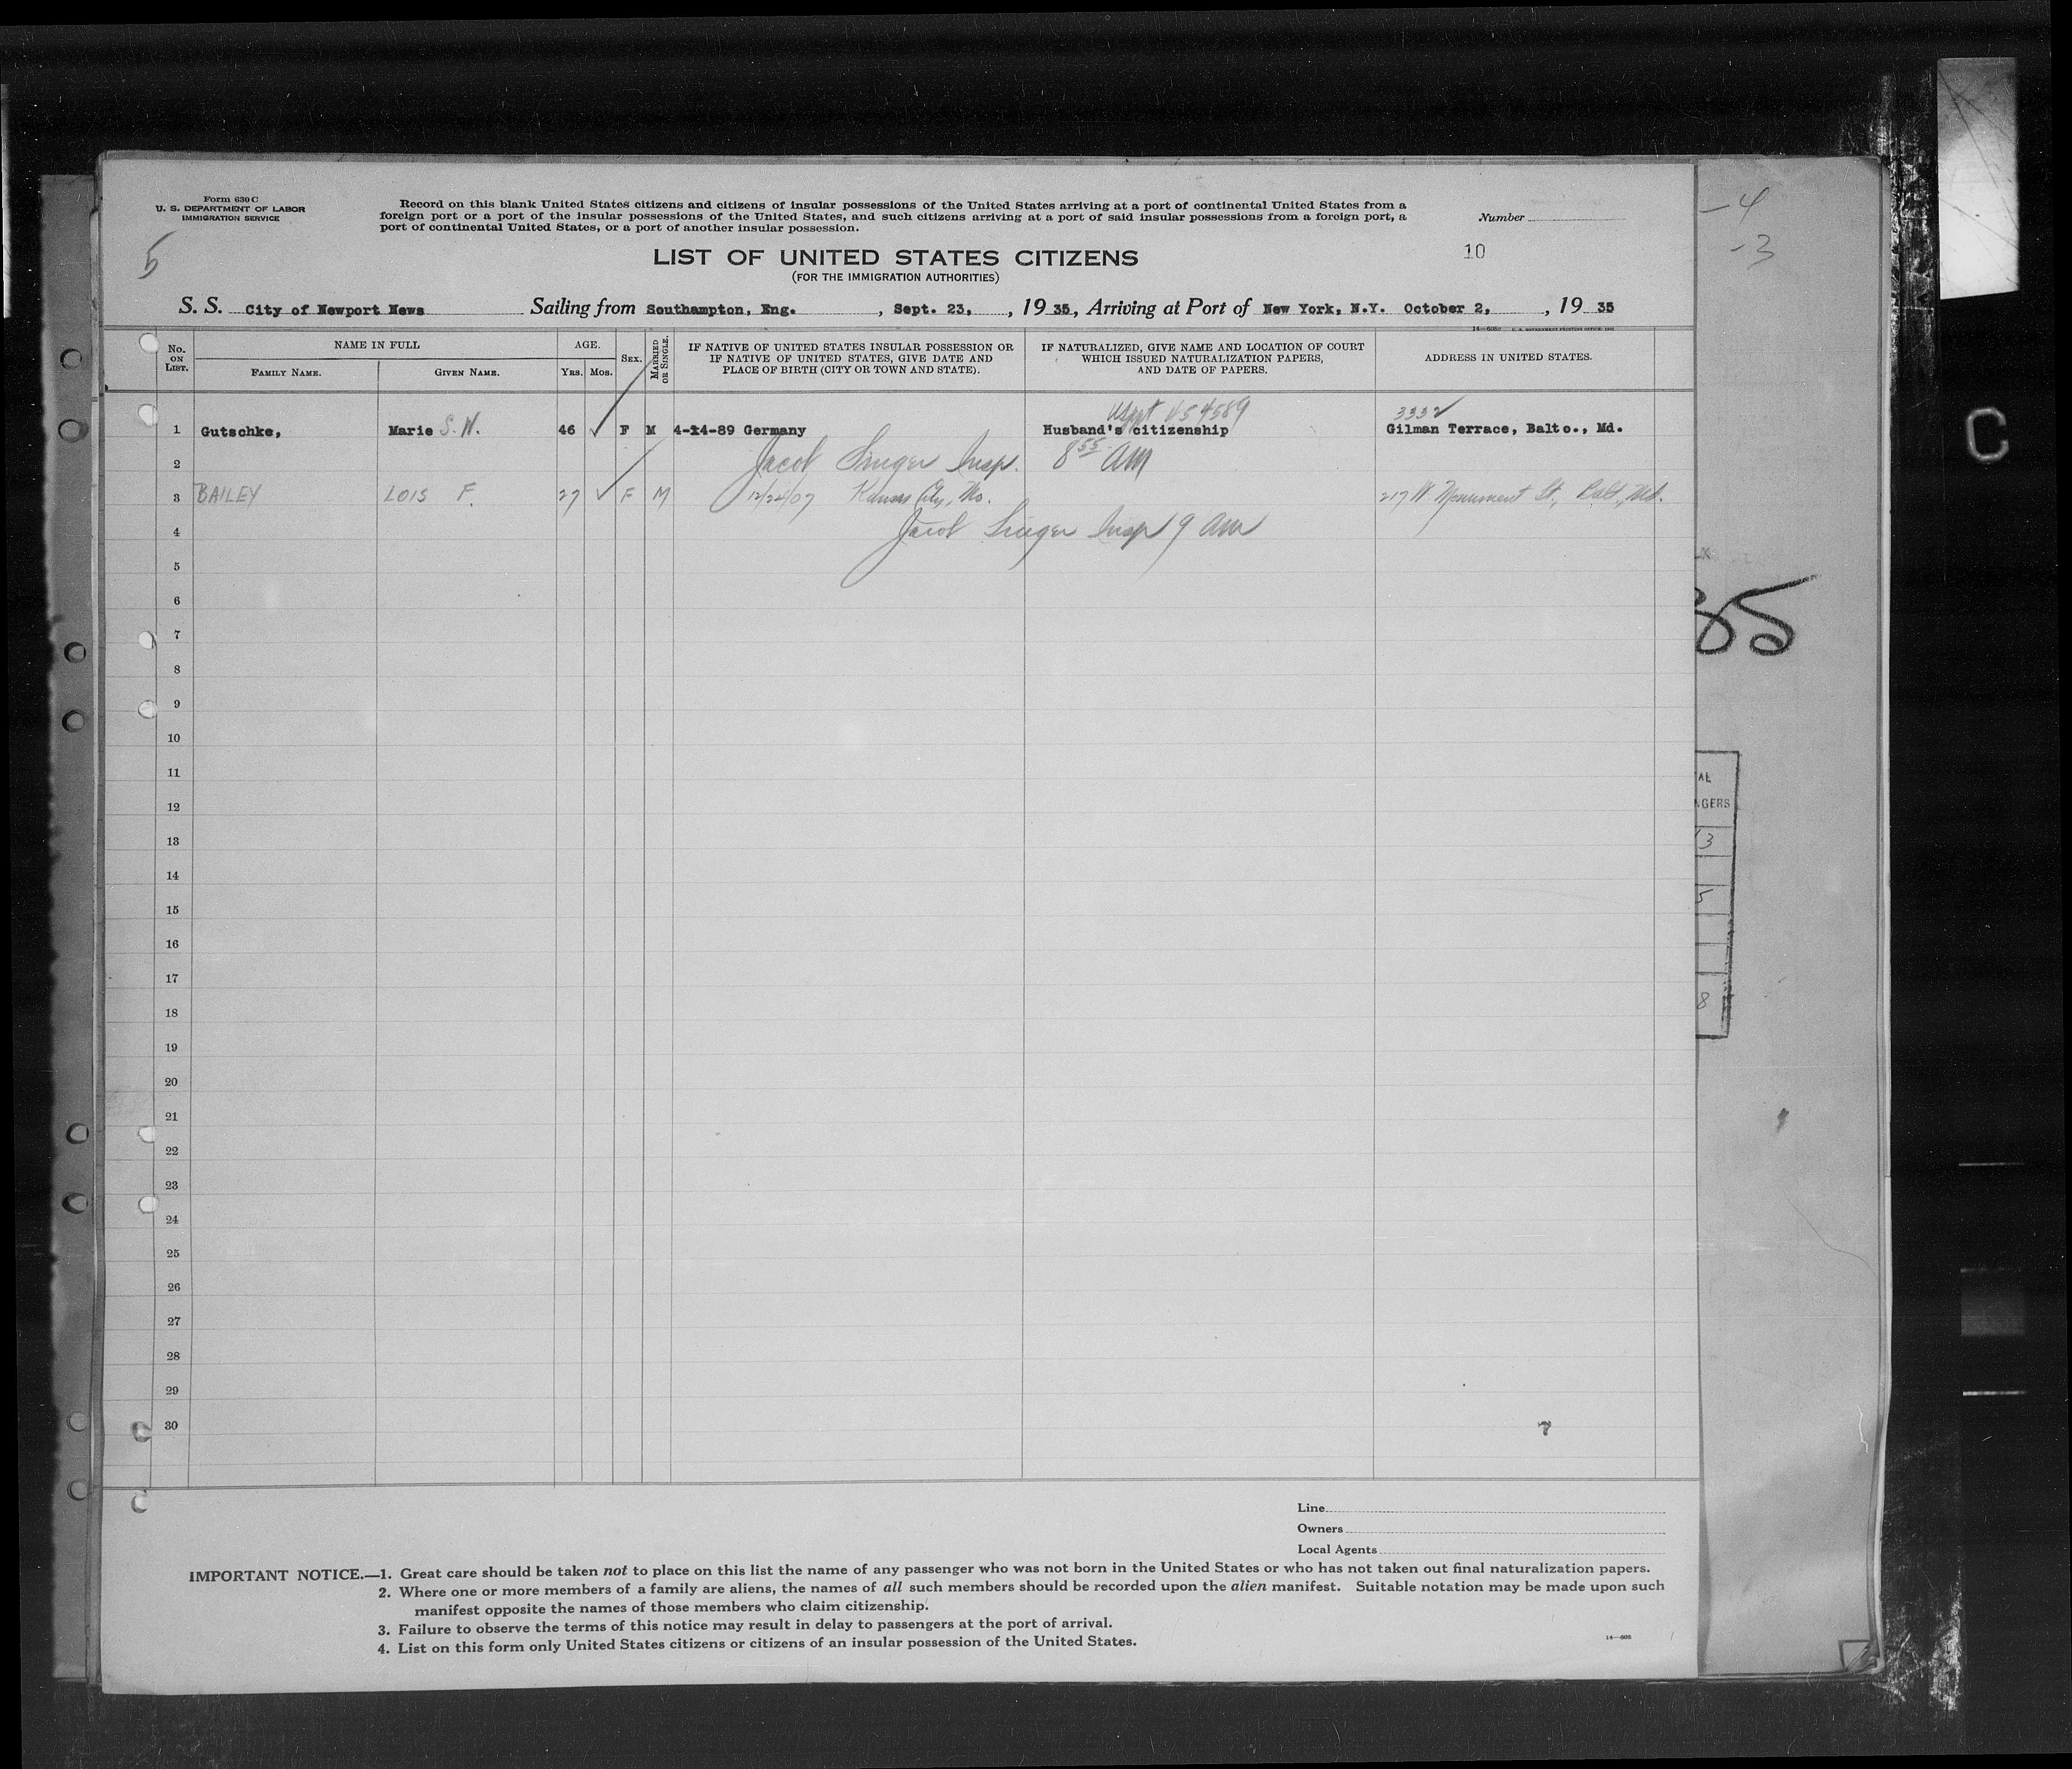 Form 630 C
U. S. DEPARTMENT OF LABOR
IMMIGRATION SERVICE
Record on this blank United States citizens and citizens of insular possessions of the United States arriving at a port of continental United States from a
foreign port or a port of the insular possessions of the United States, and such citizens arriving at a port of said insular possessions from a foreign port, a
port of continental United States, or a port of another insular possession.
Number
-4
-3
5
10
LIST OF UNITED STATES CITIZENS
(FOR THE IMMIGRATION AUTHORITIES)
S. S. City of Newport News Sailing from Southampton, Eng. , Sept. 23, , 19 35, Arriving at Port of New York, N.Y. October 2, , 19 35
No. ON LIST.
NAME IN FULL
FAMILY NAME.
GIVEN NAME.
AGE.
YRS.
MOS.
SEX.
MARRIED OR SINGLE.
IF NATIVE OF UNITED STATES INSULAR POSSESSION OR
IF NATIVE OF UNITED STATES, GIVE DATE AND
PLACE OF BIRTH (CITY OR TOWN AND STATE).
IF NATURALIZED, GIVE NAME AND LOCATION OF COURT
WHICH ISSUED NATURALIZATION PAPERS,
AND DATE OF PAPERS.
ADDRESS IN UNITED STATES.
3332
1 Gutschke, Marie S. W. 46 ✓ F M 4-14-89 Germany Husband's citizenship Gilman Terrace, Balto., Md.
2 Jacob Singer Insp. 8 55 AM
3 BAILEY LOIS F. 27 ✓ F M 12/24/07 Kansas City, Mo. 217 W. Monument St., Balt., Md.
4 Jacob Singer Insp 9 am
5
6
7
8
9
10
11
12
13
14
15
16
17
18
19
20
21
22
23
24
25
26
27
28
29
30
35
AL
NGERS
13
5
8
C
Line
Owners
Local Agents
IMPORTANT NOTICE.—1. Great care should be taken not to place on this list the name of any passenger who was not born in the United States or who has not taken out final naturalization papers.
2. Where one or more members of a family are aliens, the names of all such members should be recorded upon the alien manifest. Suitable notation may be made upon such
manifest opposite the names of those members who claim citizenship.
3. Failure to observe the terms of this notice may result in delay to passengers at the port of arrival.
4. List on this form only United States citizens or citizens of an insular possession of the United States.